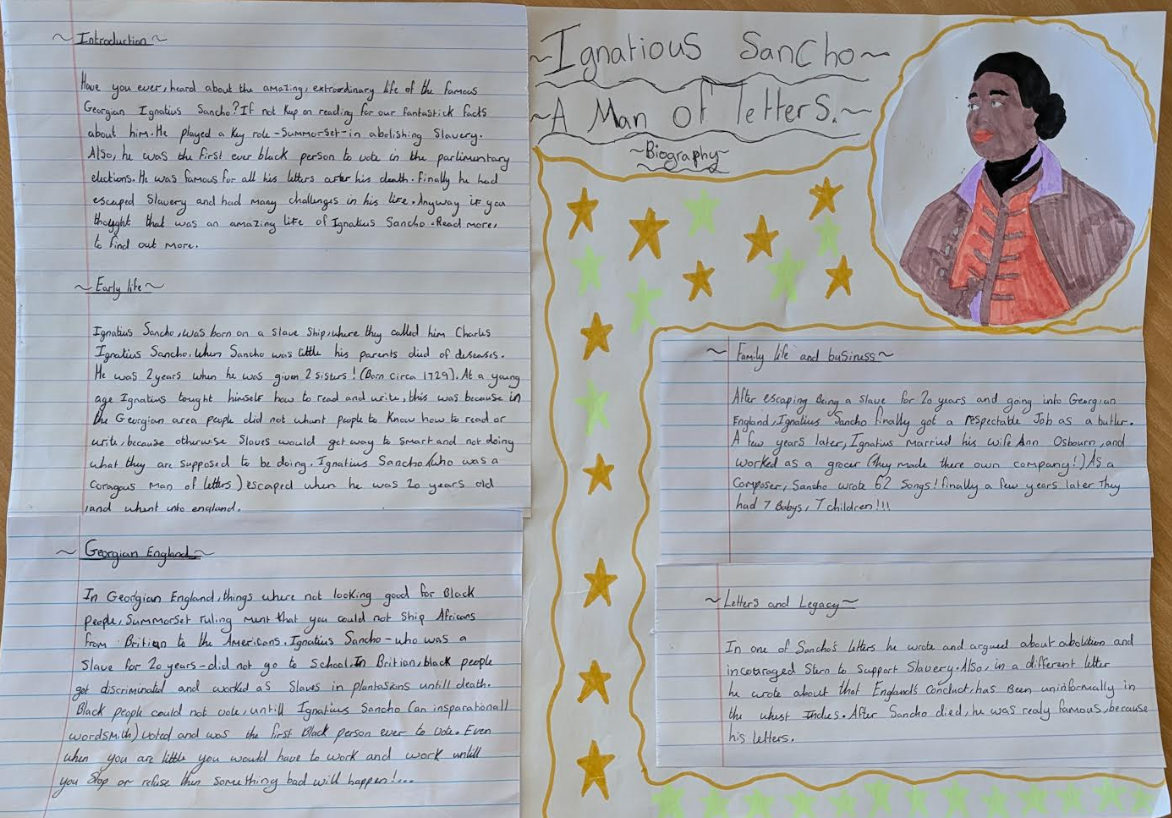 ~Introduction~
Have you ever, heard about the amazing, extraordinary life of the famous
Georgian Ignatius Sancho? If not kep on reading for our fantastick facts
about him. He played a key role -Summorset- in abolishing Slavery.
Also, he was the first ever black person to vote in the parlimentary
elections. He was famous for all his letters after his death. finally he had
escaped Slavery and had many challenges in his life. Anyway if you
thought that was an amazing life of Ignatius Sancho. Read more,
to find out more.
~Early life~
Ignatius Sancho, was born on a slave ship, where they called him Charles
Ignatius Sancho. When Sancho was little his parents died of deseases.
He was 2 years when he was given 2 sisters! (Born circa 1729). At a young
age Ignatius tought himself how to read and write, this was because in
the Georgian area people did not whant people to know how to read or
write, because otherwise Slaves would get way to smart and not doing
what they are supposed to be doing. Ignatius Sancho (who was a
coragous man of letters) escaped when he was 20 years old
and whunt into england.
~Georgian England~
In Georgian England, things where not looking good for Black
people, Summorset ruling ment that you could not ship Africans
from Britian to the Americans. Ignatius Sancho - who was a
Slave for 20 years - did not go to School. In Britian, black people
got discriminated and worked as Slaves in plantasions untill death.
Black people could not vote, untill Ignatius Sancho (an insparationall
wordsmith) voted and was the first Black person ever to vote. Even
when you are little you would have to work and work untill
you Stop or refuse then something bad will happen!...
~Ignatious Sancho~
~A Man of letters.~
~Biography~
~Family life and business~
After escaping being a slave for 20 years and going into Georgian
England, Ignatius Sancho finally got a respectable Job as a butler.
A few years later, Ignatius Married his wife Ann Osbourn, and
worked as a grocer (they made there own company!) As a
Composer, Sancho wrote 62 Songs! finally a few years later They
had 7 Babys, 7 children!!!
~Letters and Legacy~
In one of Sancho's letters he wrote and argued about abolition and
incoraraged Stern to Support Slavery. Also, in a different letter
he wrote about that England's Conduct, has been uninformally in
the whest Indies. After Sancho died, he was realy famous, because
his letters.